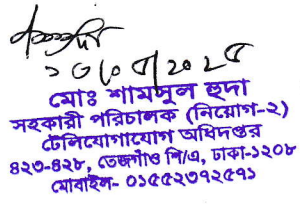 ১৩/০৫/২০২৫
মোঃ শামসুল হুদা
সহকারী পরিচালক (নিয়োগ-২)
টেলিযোগাযোগ অধিদপ্তর
৪২৩-৪২৮, তেজগাঁও শি/এ, ঢাকা-১২০৮
মোবাইল- ০১৫৫২৩৭২৫৭১